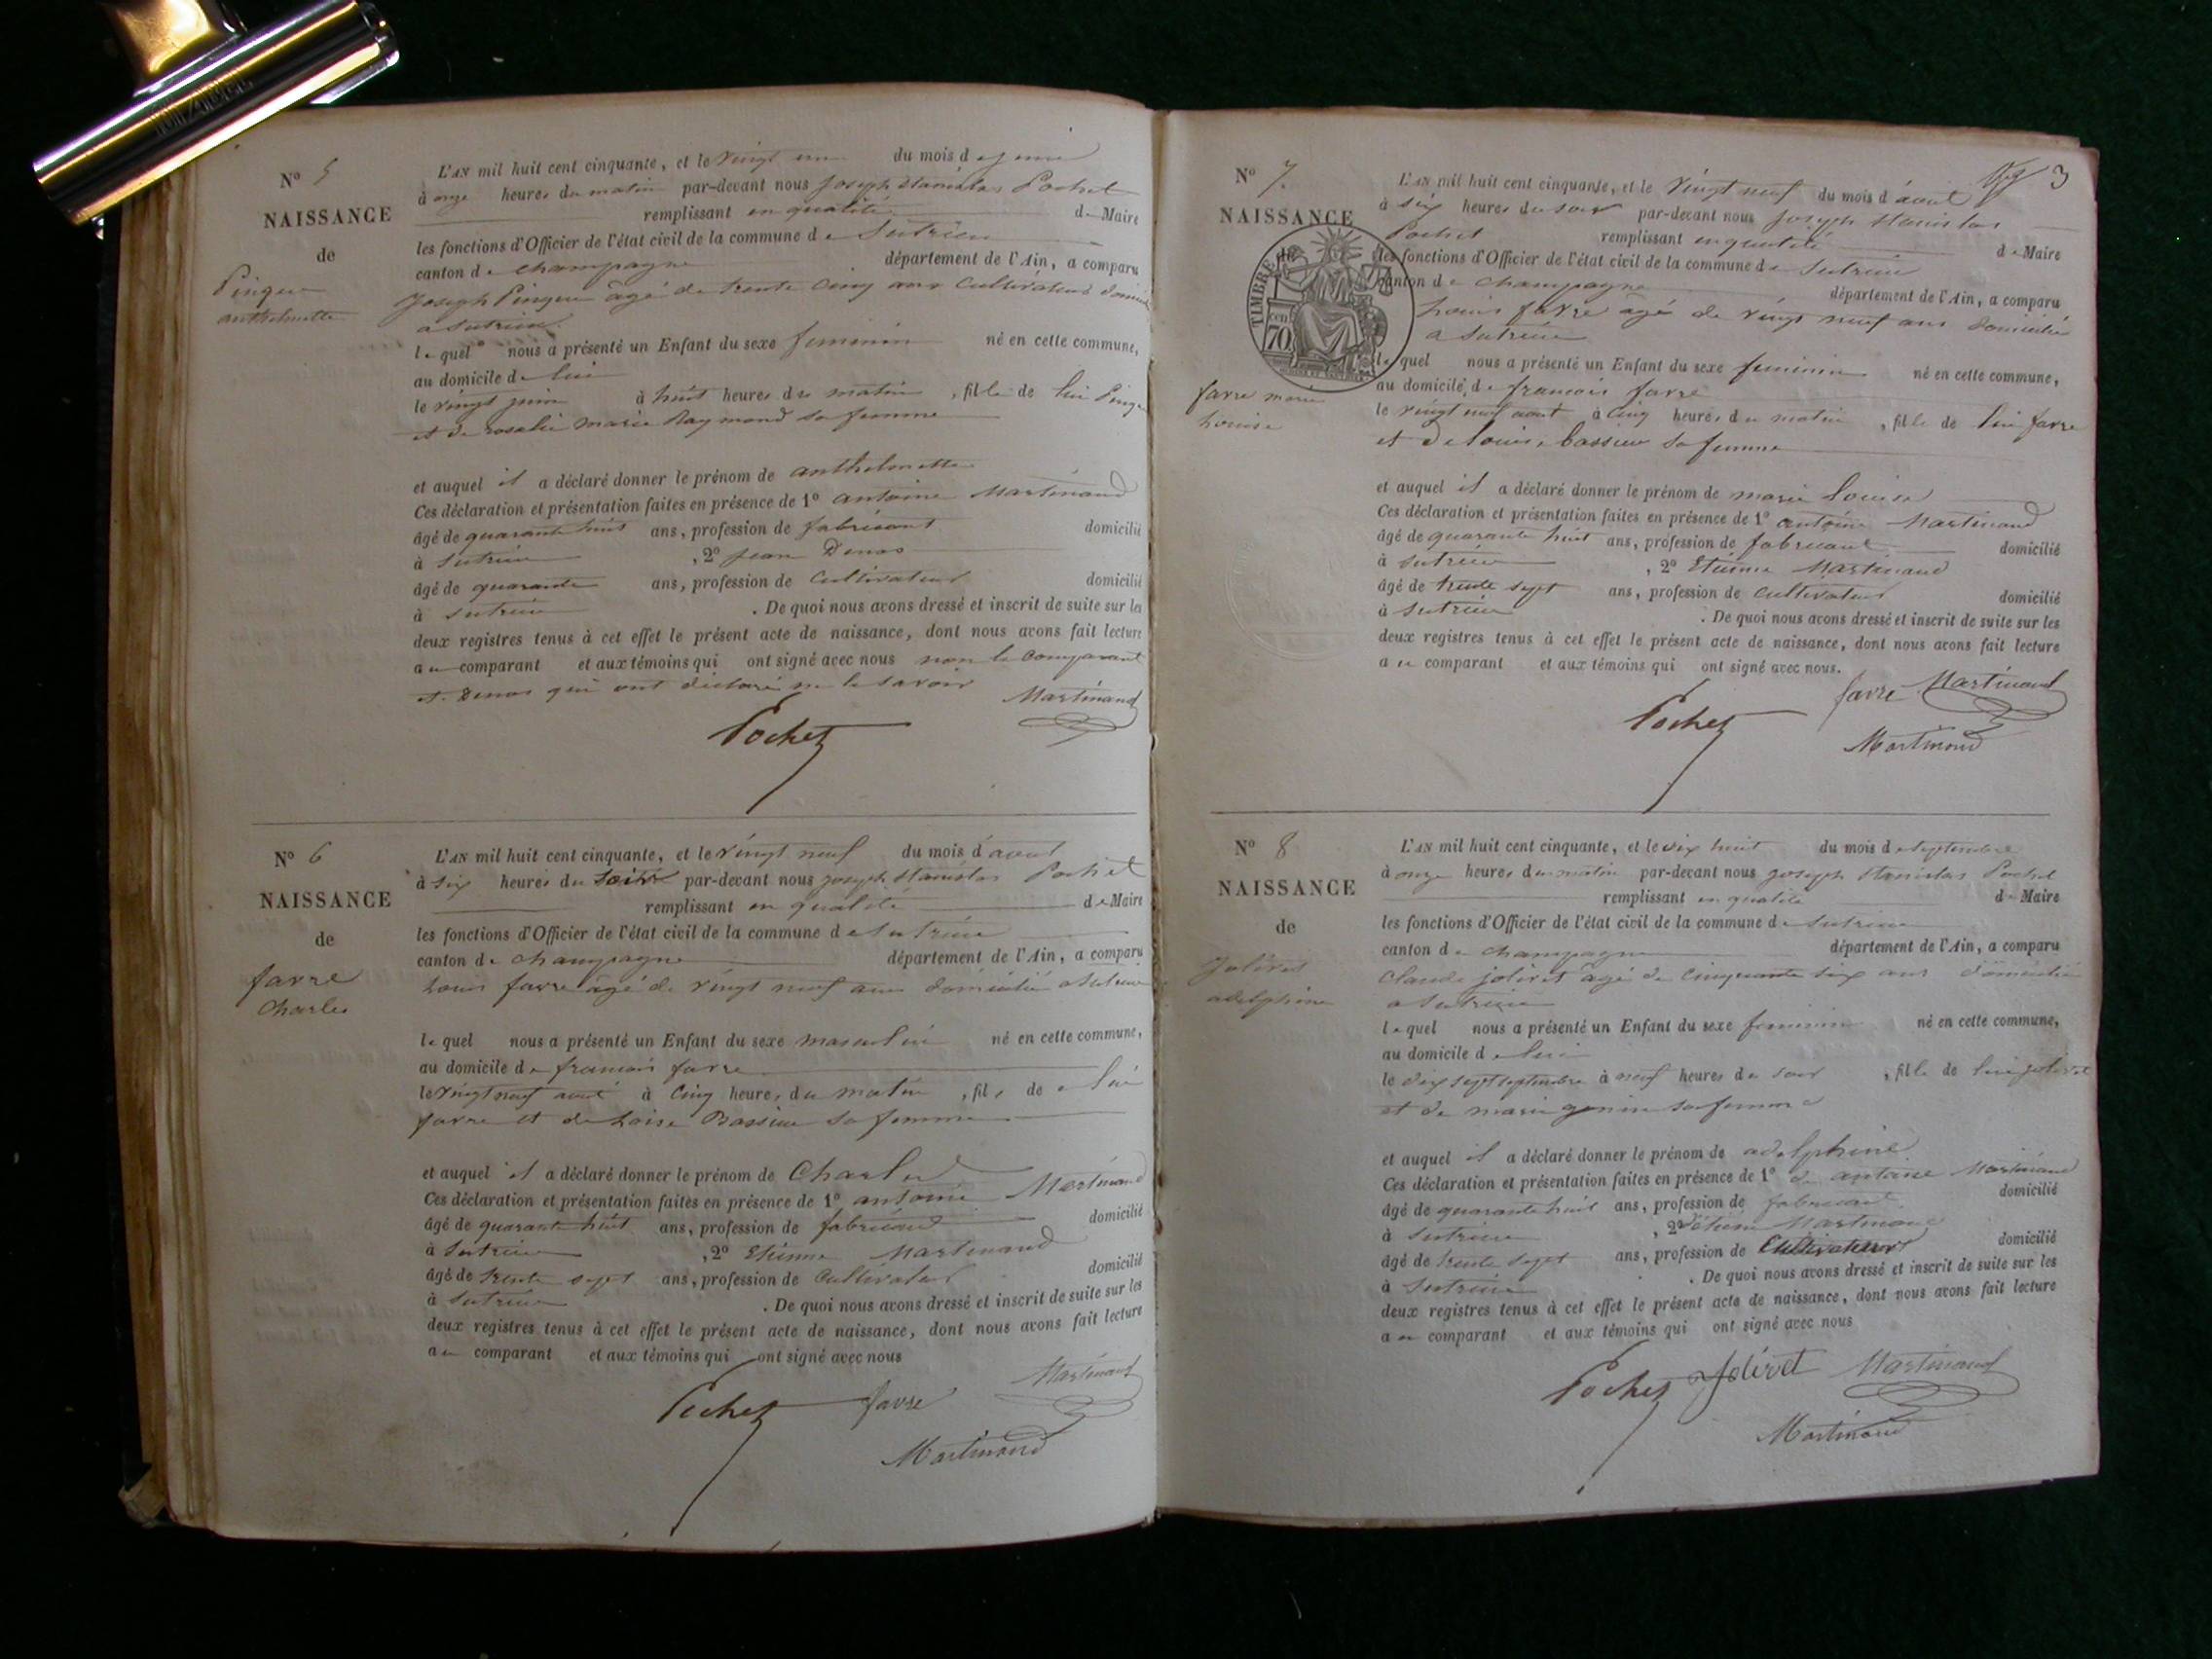 N° 5
NAISSANCE
de
Pingeu
anthelmette
L'AN mil huit cent cinquante, et le vingt un du mois de juin
à onze heures du matin par-devant nous Joseph Stanislas Pochet
remplissant en qualité de Maire
les fonctions d'Officier de l'état civil de la commune de Sutrieu
canton de champagne département de l'Ain, a comparu
Joseph Pingeu âgé de trente cinq ans Cultivateur domicilié
a Sutrieu
lequel nous a présenté un Enfant du sexe feminin né en cette commune,
au domicile de lui
le vingt juin à huit heures du matin, fille de lui Pingeu
et de rosalie marie Raymond sa femme
et auquel il a déclaré donner le prénom de anthelmette
Ces déclaration et présentation faites en présence de 1° antoine Martinand
âgé de quarante huit ans, profession de fabricant domicilié
à Sutrieu, 2° jean Denos
âgé de quarante ans, profession de Cultivateur domicilié
à Sutrieu. De quoi nous avons dressé et inscrit de suite sur les
deux registres tenus à cet effet le présent acte de naissance, dont nous avons fait lecture
au comparant et aux témoins qui ont signé avec nous non le comparant
et Denos qui ont déclaré ne le savoir
Martinand
Pochet
N° 6
NAISSANCE
de
favre
Charles
L'AN mil huit cent cinquante, et le vingt neuf du mois d'aout
à six heures du soir par-devant nous joseph Stanislas Pochet
remplissant en qualité de Maire
les fonctions d'Officier de l'état civil de la commune de Sutrieu
canton de champagne département de l'Ain, a comparu
Louis favre âgé de vingt neuf ans domicilié a Sutrieu
lequel nous a présenté un Enfant du sexe masculin né en cette commune,
au domicile de francois favre
le vingt neuf aout à cinq heures du matin, fils de lui
favre et de Loise Bassieu sa femme
et auquel il a déclaré donner le prénom de Charles
Ces déclaration et présentation faites en présence de 1° antoine Martinand
âgé de quarante huit ans, profession de fabricant domicilié
à Sutrieu, 2° Etienne Martinand
âgé de trente sept ans, profession de Cultivateur domicilié
à Sutrieu. De quoi nous avons dressé et inscrit de suite sur les
deux registres tenus à cet effet le présent acte de naissance, dont nous avons fait lecture
au comparant et aux témoins qui ont signé avec nous
Martinand
Pochet favre
Martinand
3
N° 7.
NAISSANCE
de
TIMBRE
70 cen
favre marie
Louise
L'AN mil huit cent cinquante, et le vingt neuf du mois d'aout
à six heures du soir par-devant nous joseph Stanislas
Pochet remplissant en qualité de Maire
les fonctions d'Officier de l'état civil de la commune de Sutrieu
canton de champagne département de l'Ain, a comparu
Louis favre âgé de vingt neuf ans domicilié
a Sutrieu
lequel nous a présenté un Enfant du sexe feminin né en cette commune,
au domicile de francois favre
le vingt neuf aout à cinq heures du matin, fille de lui favre
et de louise bassieu sa femme
et auquel il a déclaré donner le prénom de marie louise
Ces déclaration et présentation faites en présence de 1° antoine Martinand
âgé de quarante huit ans, profession de fabricant domicilié
à Sutrieu, 2° Etienne Martinand
âgé de trente sept ans, profession de cultivateur domicilié
à Sutrieu. De quoi nous avons dressé et inscrit de suite sur les
deux registres tenus à cet effet le présent acte de naissance, dont nous avons fait lecture
au comparant et aux témoins qui ont signé avec nous.
favre Martinand
Pochet
Martinand
N° 8
NAISSANCE
de
Joliret
adelphine
L'AN mil huit cent cinquante, et le dix huit du mois de septembre
à onze heures du matin par-devant nous joseph Stanislas Pochet
remplissant en qualité de Maire
les fonctions d'Officier de l'état civil de la commune de Sutrieu
canton de champagne département de l'Ain, a comparu
Claude joliret âgé de cinquante six ans domicilié
a Sutrieu
lequel nous a présenté un Enfant du sexe feminin né en cette commune,
au domicile de lui
le dix sept septembre à neuf heures du soir, fille de lui joliret
et de marie genin sa femme
et auquel il a déclaré donner le prénom de adelphine
Ces déclaration et présentation faites en présence de 1° de antoine Martinand
âgé de quarante huit ans, profession de fabricant domicilié
à Sutrieu, 2° étienne Martinand
âgé de trente sept ans, profession de Cultivateur domicilié
à Sutrieu. De quoi nous avons dressé et inscrit de suite sur les
deux registres tenus à cet effet le présent acte de naissance, dont nous avons fait lecture
au comparant et aux témoins qui ont signé avec nous
Pochet Joliret Martinand
Martinand